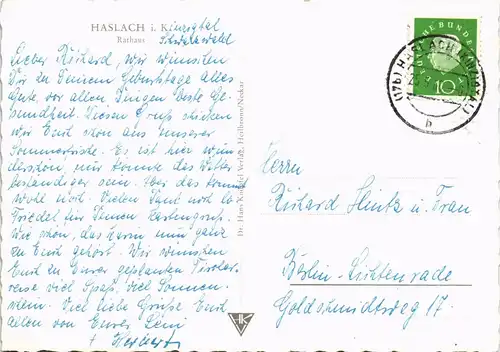 HASLACH i. Kinzigtal
Rathaus Schwarzwald
Lieber Richard, wir wünschen
Dir zu Deinem Geburtstage alles
Gute, vor allen Dingen beste Ge-
sundheit. Diesen Gruß schicken
wir Euch schon aus unserer
Sommerfrische. Es ist hier wun-
derschön, nur könnte das Wetter
beständiger sein. Aber das kommt
wohl noch. Vielen Dank noch lb.
Frieder für Deinen Kartengruß.
Wie schön, das Karin nun ganz
zu Euch gehört. Wir wünschen
Euch zu Eurer geplanten Tiroler-
reise viel Spaß, viel Sonnen-
schein. Viele liebe Grüße Euch
allen von Eurer Leni
+ Herbert
Dr. Hans Verlag, Heilbronn/Neckar
HK
DEUTSCHE BUNDESPOST
10
(17b) HASLACH (KINZIGTAL)
b
Herrn
Richard Hintz u. Frau
Berlin-Lichtenrade
Goldschmidtsweg 17.